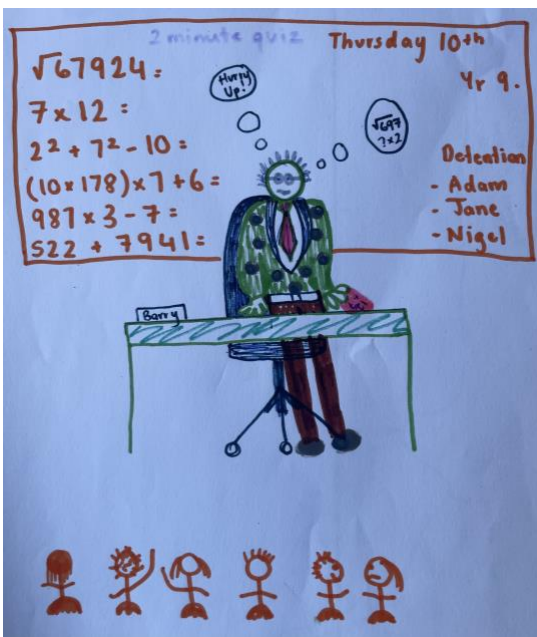 2 minute quiz
Thursday 10th
Yr 9.
√67924=
7x12=
2²+7²-10=
(10x178)x7+6=
987x3-7=
522+7941=
Hurry
Up!
√697
?x2
Detention
- Adam
- Jane
- Nigel
Barry